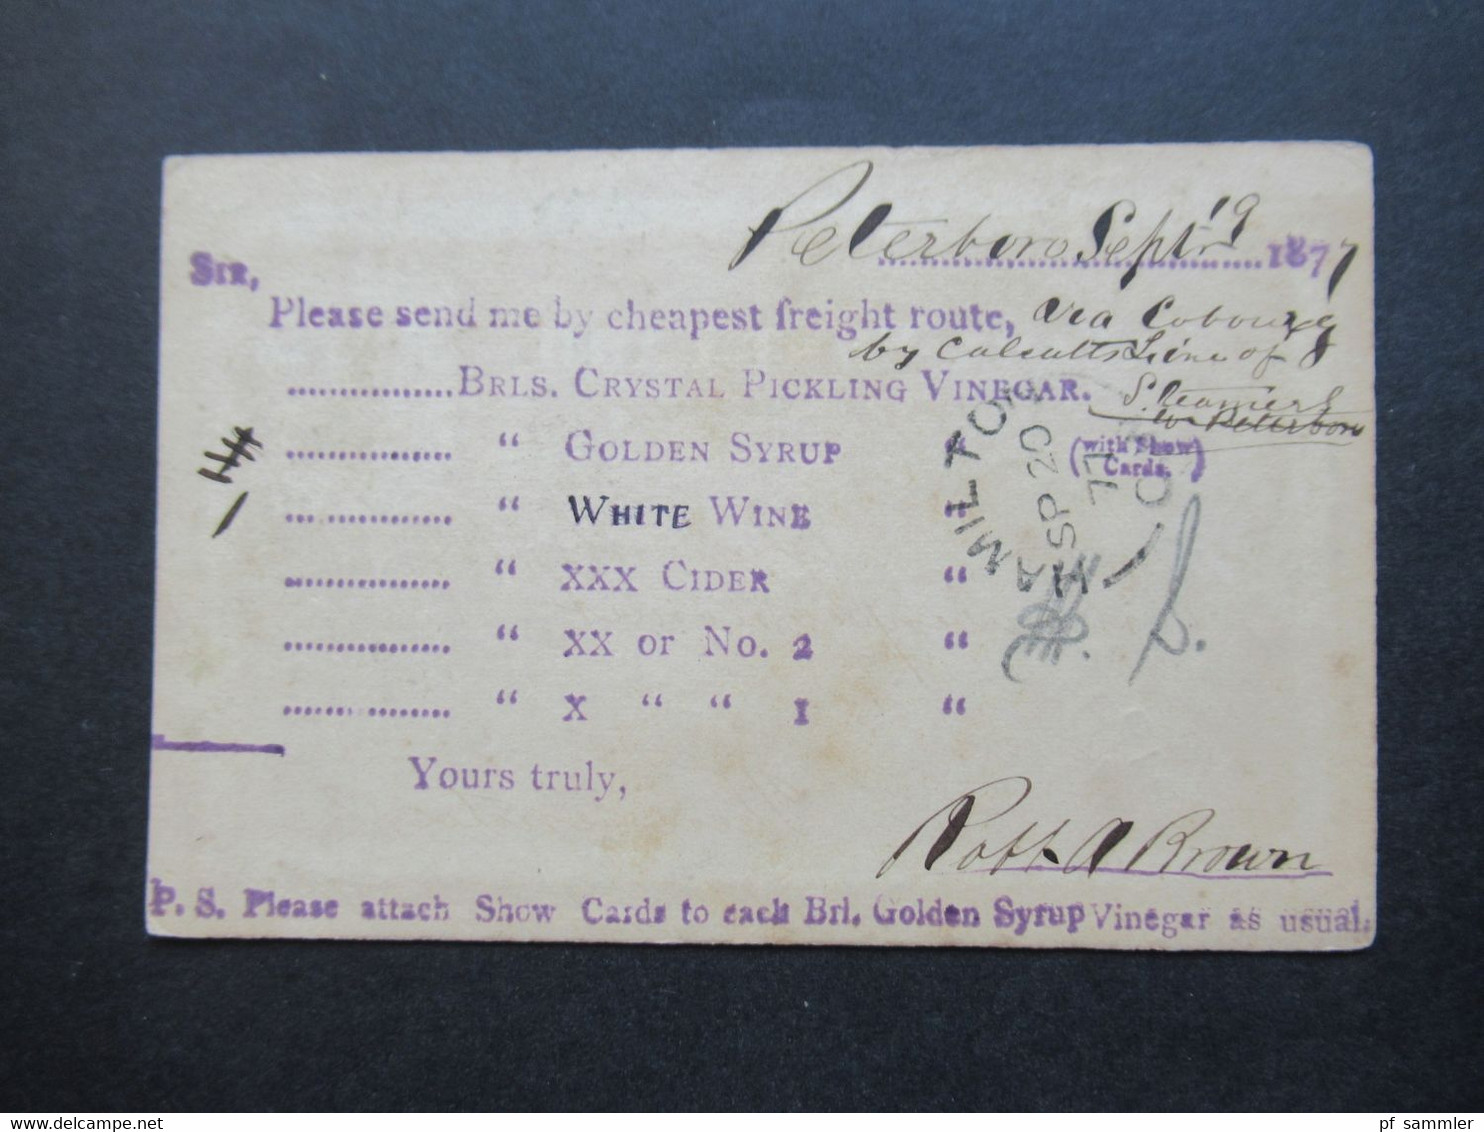 Peterboro Sept 19 1877
Sir,
Please send me by cheapest freight route, via Cobourg
by Calcutts Line of
Steamers
to Peterboro
BRLS. CRYSTAL PICKLING VINEGAR.
“ GOLDEN SYRUP “ (with Show Cards.)
“ WHITE WINE “
“ XXX CIDER “
“ XX or No. 2 “
“ X “ “ 1 “
HAMILTON
SP 20
77
Yours truly,
Robt. A Brown
P. S. Please attach Show Cards to each Brl. Golden Syrup Vinegar as usual.
pf sammler